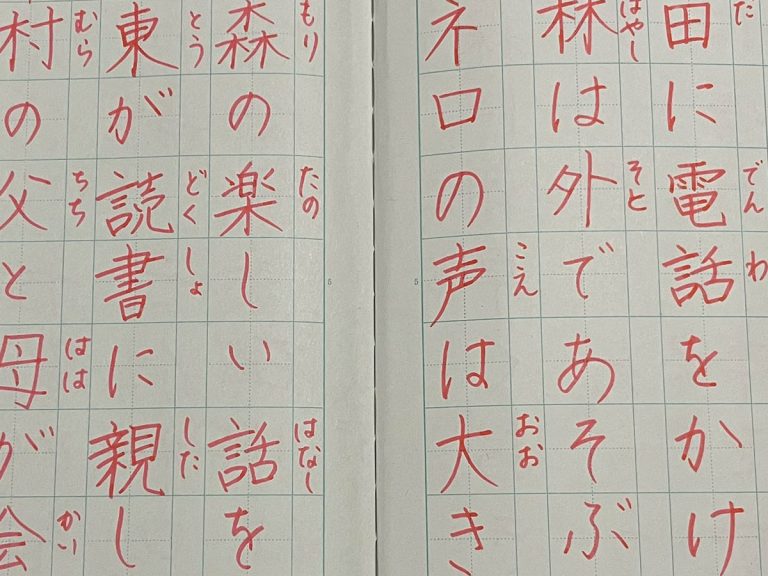 た でん わ
田に電話をかけ
はやし そと
林は外であそぶ
こえ おお
ネロの声は大き
5
5
もり たの はなし
森の楽しい話を
とう どく しょ した
東が読書に親し
むら ちち はは かい
村の父と母が会